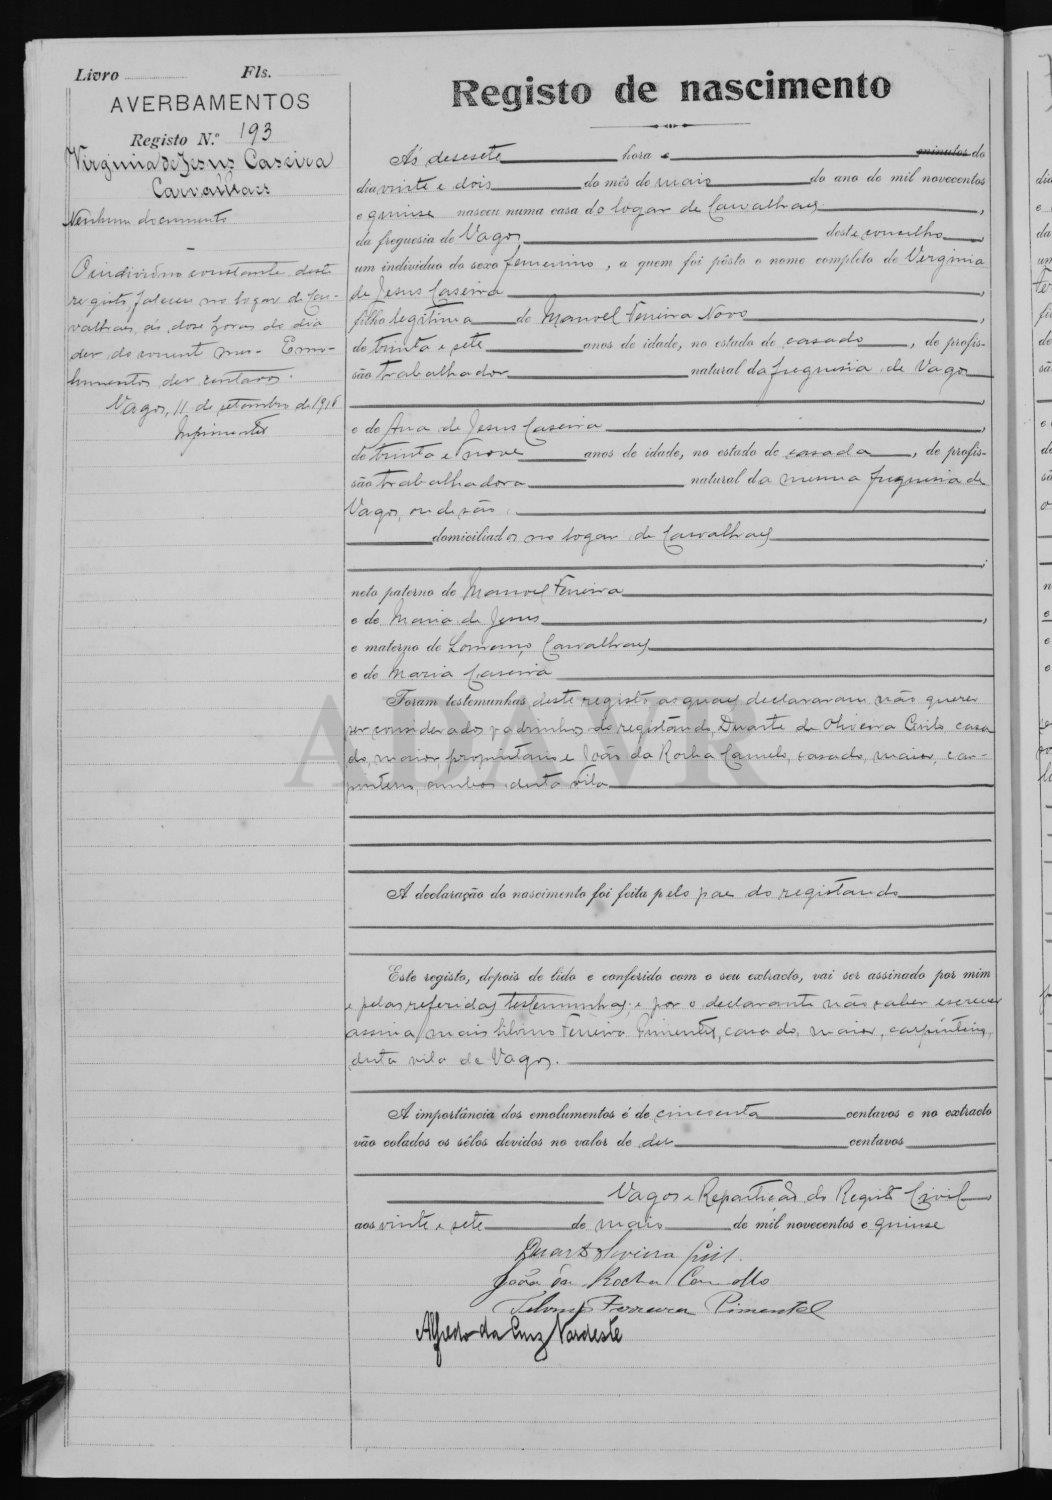 Livro Fls.
AVERBAMENTOS
Registo N.º 193
Virginia de Jesus Caseira
Carvalhaes
Nenhum documento
O individuo constante deste
registo faleceu no logar de Car-
valhaes, ás doze horas do dia
dez do corrente mez. Emo-
lumentos dez centavos.
Vagos, 11 de setembro de 1916
Registo de nascimento
Ás desesete hora e minutos do
dia vinte e dois do mês de maio do ano de mil novecentos
e quinse nasceu numa casa do logar de Carvalhaes,
da freguesia de Vagos, deste concelho,
um individuo do sexo femenino, a quem foi pôsto o nome completo de Verginia
de Jesus Caseira,
filho legitima de Manoel Ferreira Novo,
de trinta e sete anos de idade, no estado de casado, de profis-
são trabalhador natural da freguesia de Vagos
e de Ana de Jesus Caseira,
de trinta e nove anos de idade, no estado de casada, de profis-
são trabalhadora natural da mesma freguesia de
Vagos, onde são,
domiciliados no logar de Carvalhaes
neto paterno de Manoel Ferreira
e de Maria de Jesus,
e materno de Lourenço Carvalhaes
e de Maria Caseira
Foram testemunhas deste registo as quaes declararam não querer
ser considerados padrinhos do registando, Duarte de Oliveira Crilo casa
do, maior proprietario e João da Rocha Camelo, casado, maior, car-
pinteiro, ambos desta vila
ADAVR
A declaração do nascimento foi feita pelo pae do registando
Este registo, depois de lido e conferido com o seu extracto, vai ser assinado por mim
e pelas referidas testemunhas, e por o declarante não saber escrever
assina mais Silvino Ferreira Pimentel, casado, maior, carpinteiro,
desta vila de Vagos.
A importância dos emolumentos é de cincoenta centavos e no extracto
vão colados os sêlos devidos no valor de dez centavos
Vagos e Repartição do Registo Civil
aos vinte e sete de maio de mil novecentos e quinse
Duarte Oliveira
João da Rocha Camello
Silvino Ferreira Pimentel
Alfredo da Cruz Nordeste